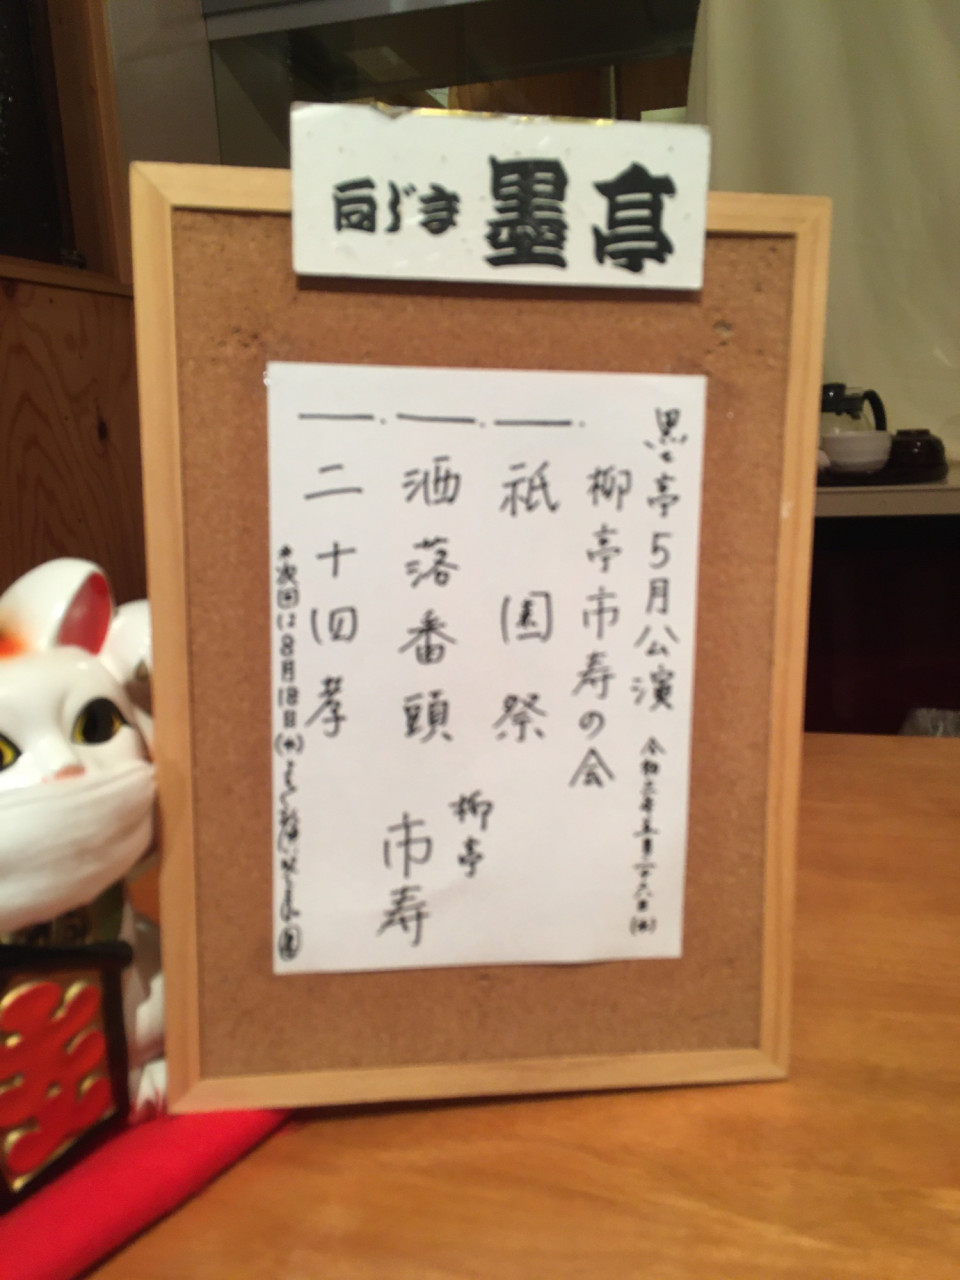 向じま 墨亭
墨亭5月公演 令和三年五月二十六日(水)
柳亭市寿の会
一.祇園祭
一.洒落番頭
一.二十四孝
柳亭
市寿
次回は8月18日(水)